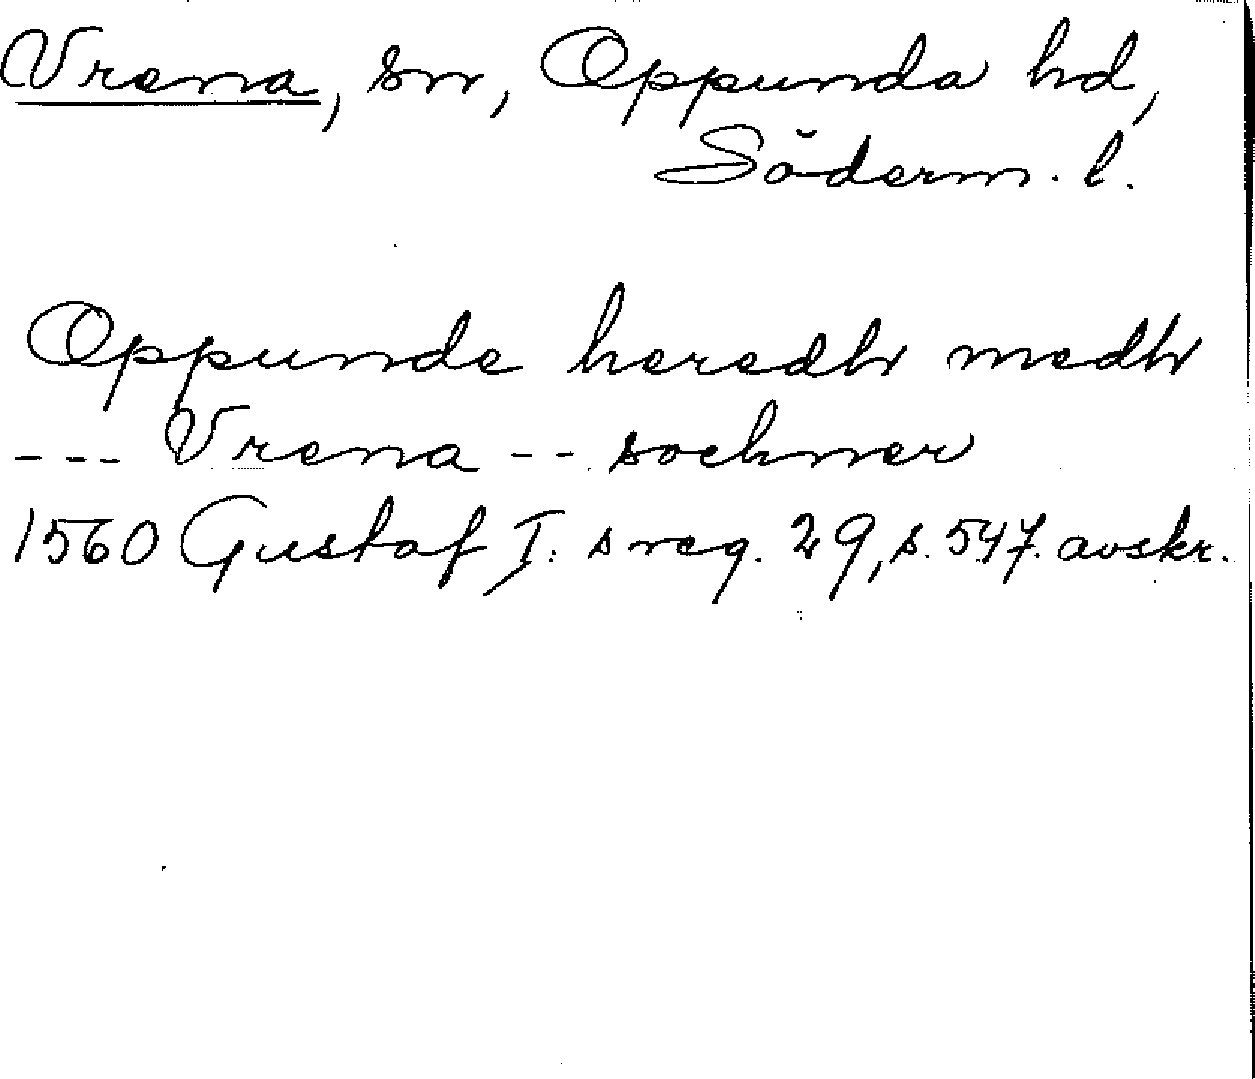 Vrena, sn, Oppunda hd,
Söderm. l.
Oppunde heredh medh
--- Vrena -- sochner
1560 Gustaf I:s reg. 29, s. 547. avskr.